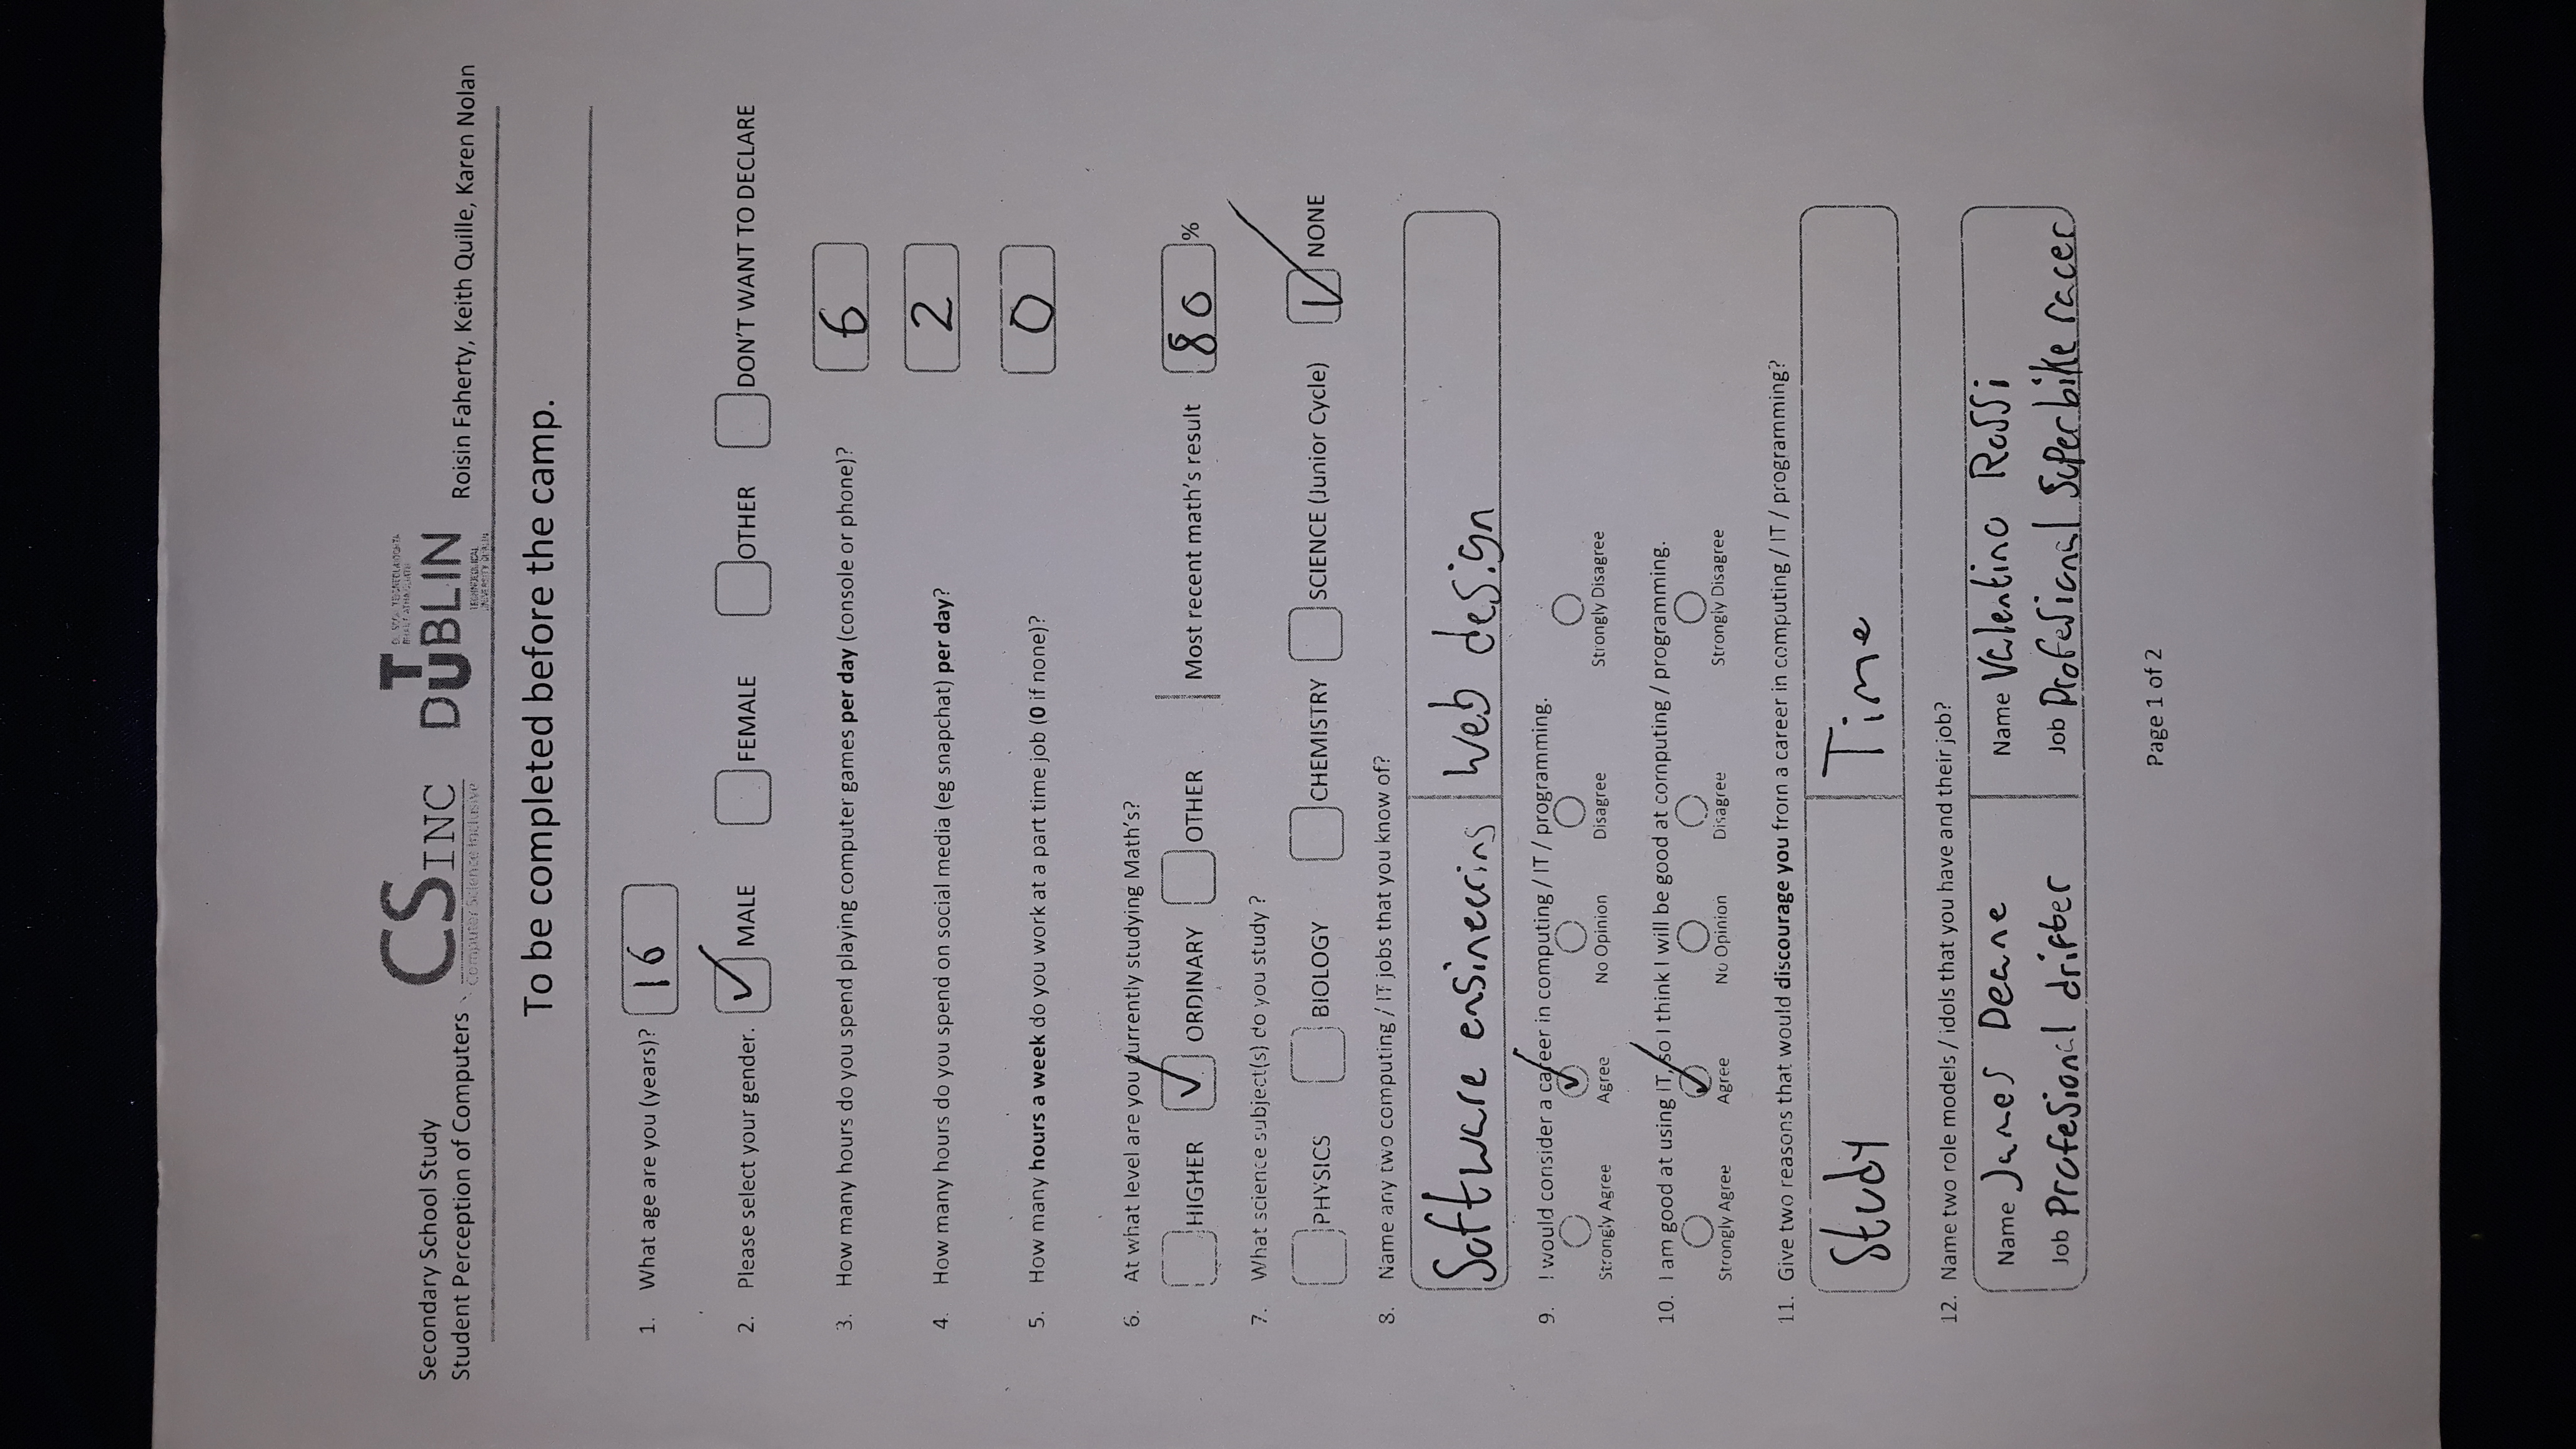 Secondary School Study
Student Perception of Computers
CSINC
Computer Science Inclusive
TU DUBLIN
TECHNOLOGICAL
UNIVERSITY DUBLIN
Roisin Faherty, Keith Quille, Karen Nolan
To be completed before the camp.
1. What age are you (years)? 16
2. Please select your gender. ✓ MALE FEMALE OTHER DON'T WANT TO DECLARE
3. How many hours do you spend playing computer games per day (console or phone)? 6
4. How many hours do you spend on social media (eg snapchat) per day? 2
5. How many hours a week do you work at a part time job (0 if none)? 0
6. At what level are you currently studying Math's?
HIGHER ✓ ORDINARY OTHER Most recent math's result 80 %
7. What science subject(s) do you study ?
PHYSICS BIOLOGY CHEMISTRY SCIENCE (Junior Cycle) ✓ NONE
8. Name any two computing / IT jobs that you know of?
Software engineering Web design
9. I would consider a career in computing / IT / programming.
Strongly Agree ✓ Agree No Opinion Disagree Strongly Disagree
10. I am good at using IT, so I think I will be good at computing / programming.
Strongly Agree ✓ Agree No Opinion Disagree Strongly Disagree
11. Give two reasons that would discourage you from a career in computing / IT / programming?
Study Time
12. Name two role models / idols that you have and their job?
Name James Deane Name Valentino Rossi
Job Profesional drifter Job Profesional Superbike racer
Page 1 of 2